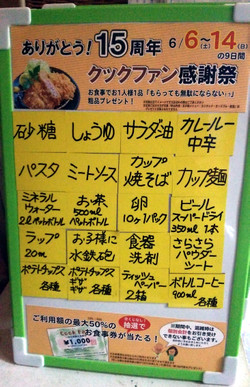 ありがとう!15周年 6/6(土)~14(日)
の9日間
クックファン感謝祭
お食事でお1人様1品「もらっても無駄にならない…」
粗品プレゼント!
砂糖 しょうゆ サラダ油 カレールー
中辛
パスタ ミートソース カップ
焼そば カップ麺
ミネラル
ウォーター
2Lペットボトル お茶
500ml
ペットボトル 卵
10ヶ1パック ビール
スーパードライ
350ml 1本
ラップ
20m お子様に
水鉄砲 食器
洗剤 さらさら
パウダー
シート
ポテトチップス
各種 ポテトチップス
ギザギザ
各種 ティッシュ
ペーパー
2箱 ボトルコーヒー
900ml 各種
ご利用額の最大50%の 抽選で
お食事券が当たる!
¥1,000